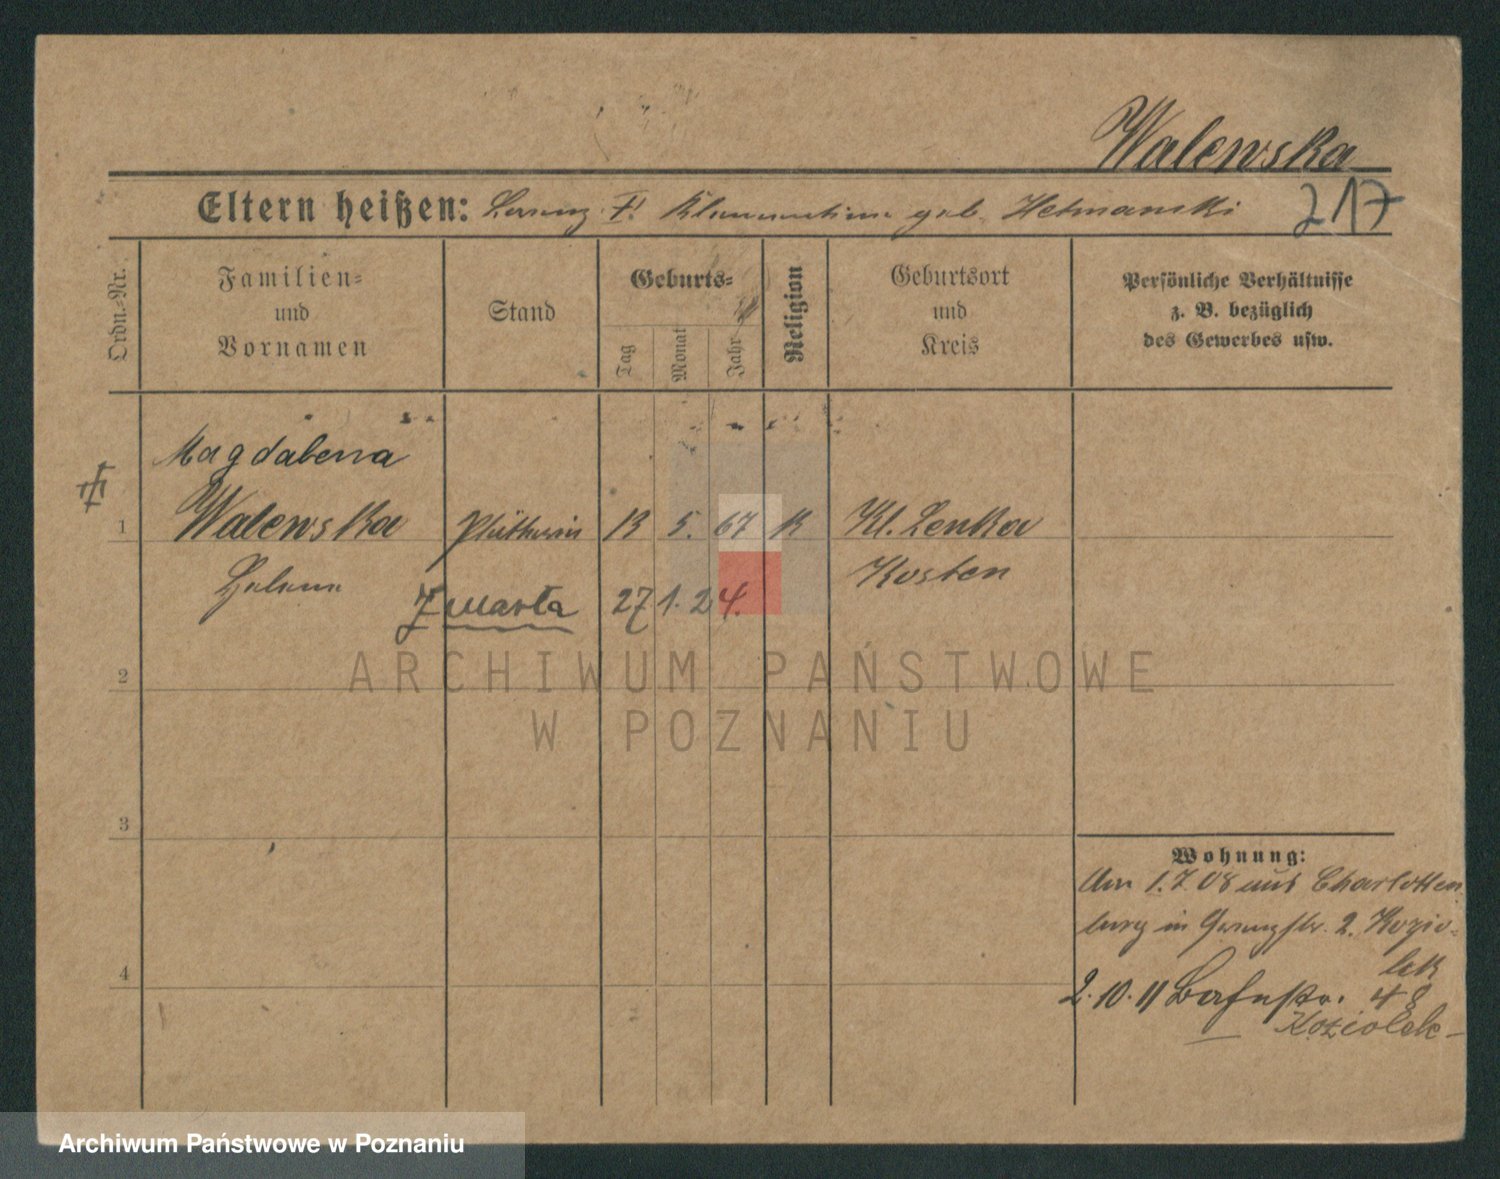 Walewska
217
Eltern heißen: Lorenz F! Klementine geb. Hetmanski
Ordn.-Nr.
Familien-
und
Vornamen
Stand
Geburts-
Tag
Monat
Jahr
Religion
Geburtsort
und
Kreis
Persönliche Verhältnisse
z. B. bezüglich
des Gewerbes usw.
Magdalena
1 Walewska Plätterin 13 5. 67 K Kl. Lenka
Helene Kosten
zmarła 27 1. 24.
2
ARCHIWUM PAŃSTWOWE
W POZNANIU
3
Wohnung:
Am 1.7.08 aus Charlotten
burg in 2. Kozio-
lek
4
2.10.11 Bahnstr. 48
Koziolek
Archiwum Państwowe w Poznaniu